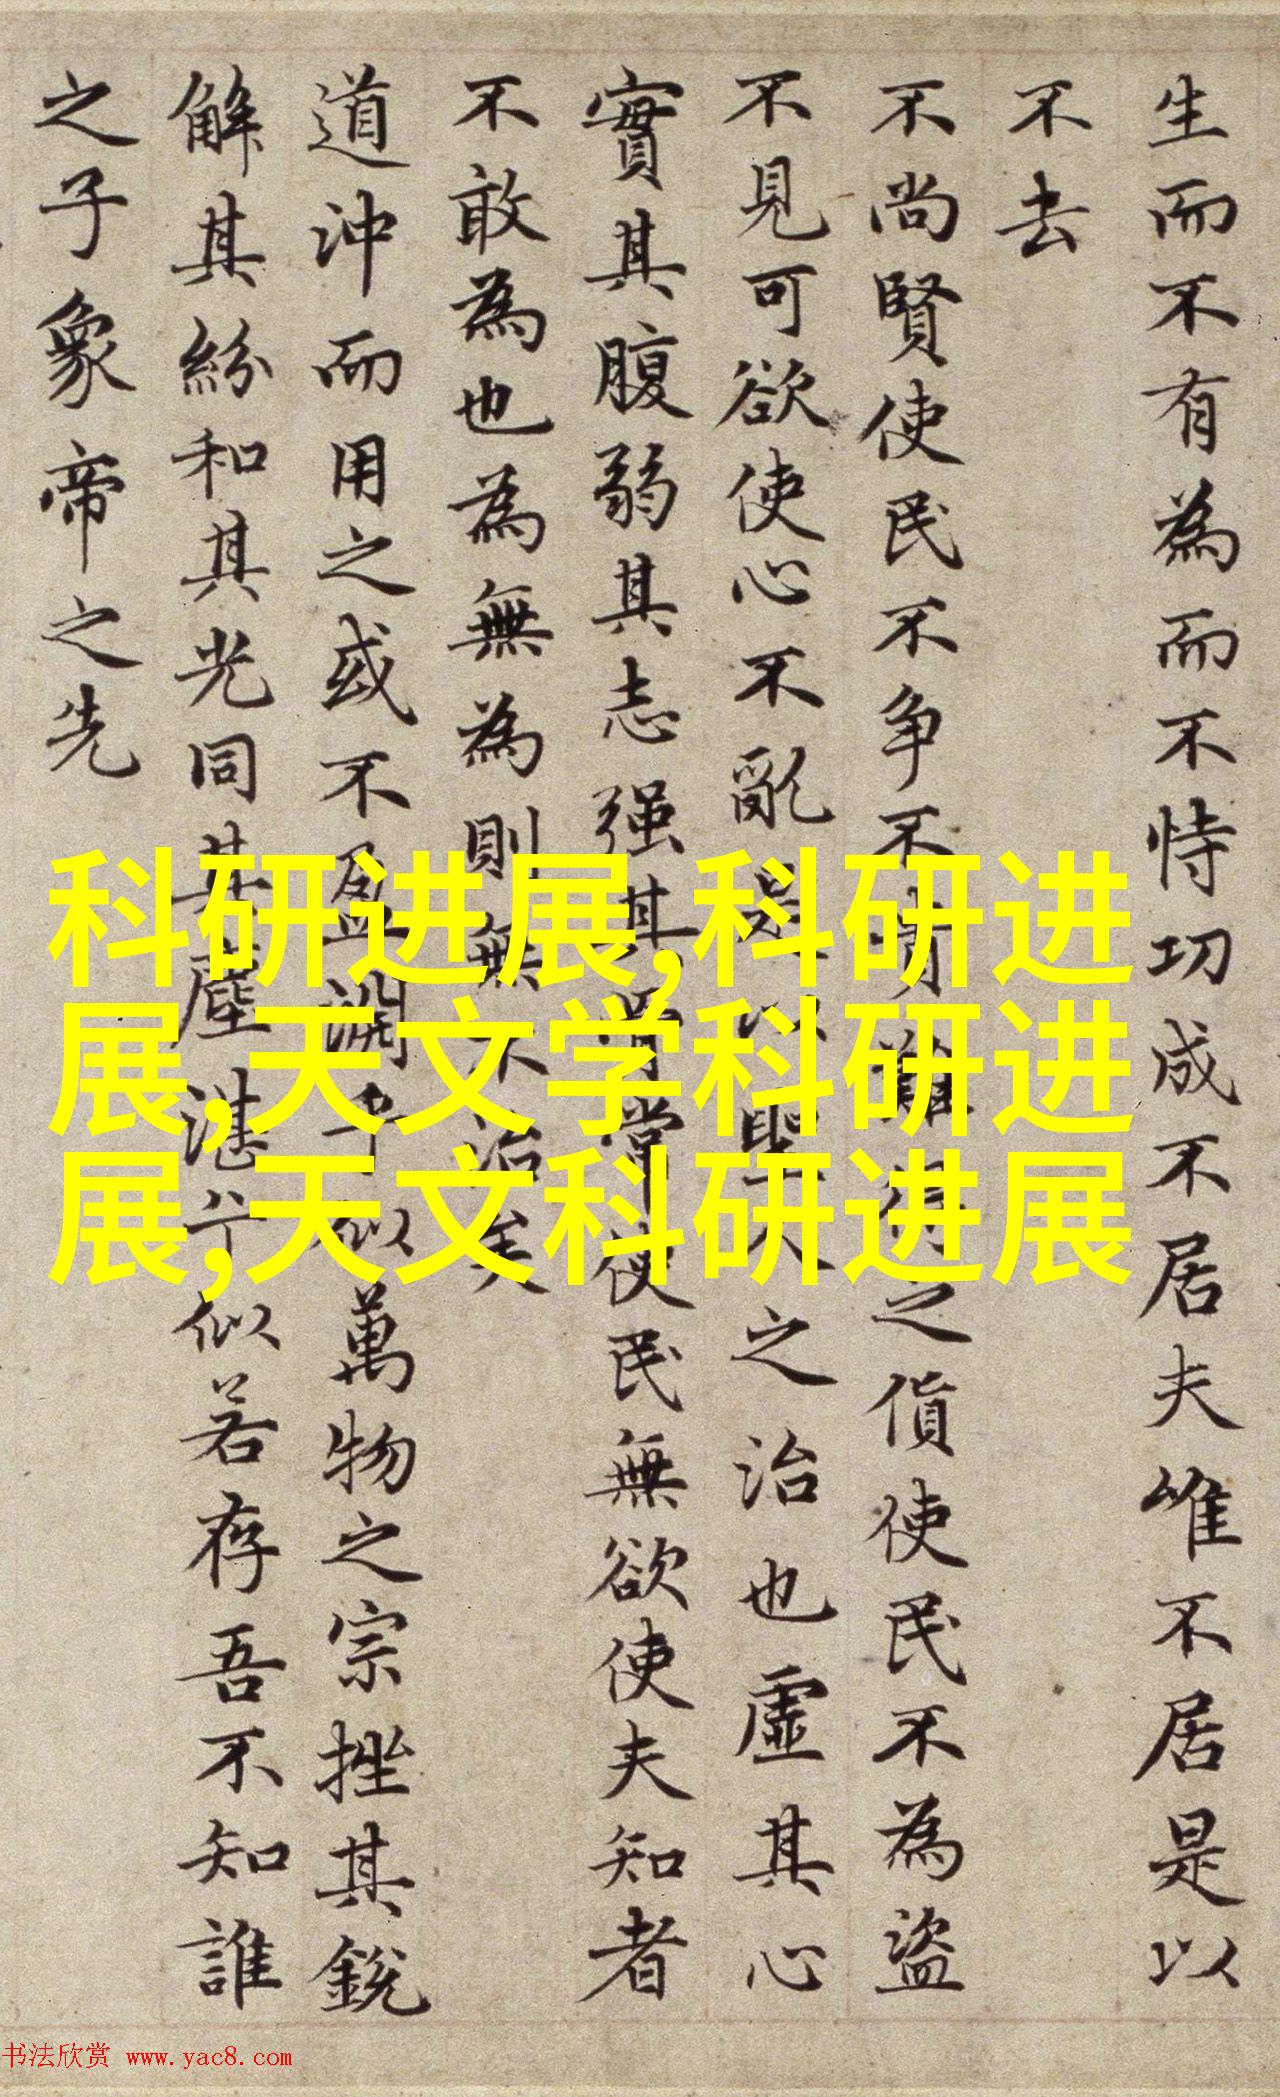 生而不有為而不恃功成不居夫唯不居是以
不去
不尚賢使民不争不貴難得之貨使民不為盗
不見可欲使心不亂是以聖人之治也虛其心
實其腹弱其志强其骨常使民無欲使夫知者
不敢為也為無為則無不治矣
道沖而用之或不盈淵乎似萬物之宗挫其銳
解其紛和其光同其塵湛兮似若存吾不知誰
之子象帝之先
科研进展,科研进
展,天文学科研进
展,天文科研进展
书法欣赏 www.yac8.com